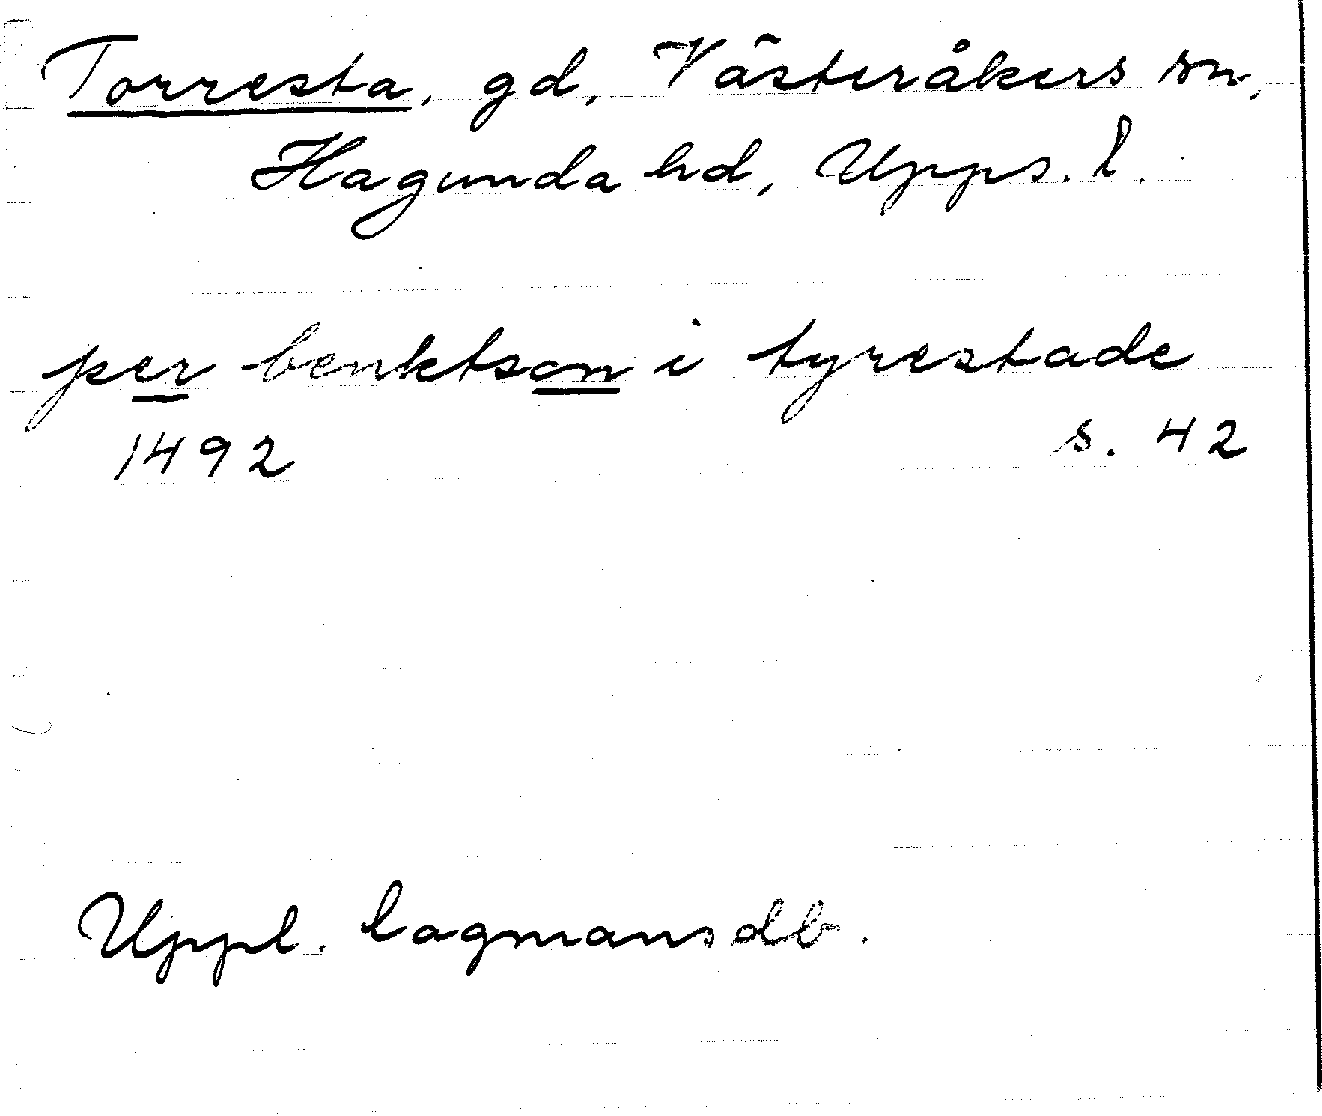 Torresta, gd, Västeråkers sn,
Hagunda hd, Upps. l.
per benktson i tyrestade
1492 s. 42
Uppl. lagmansdb.